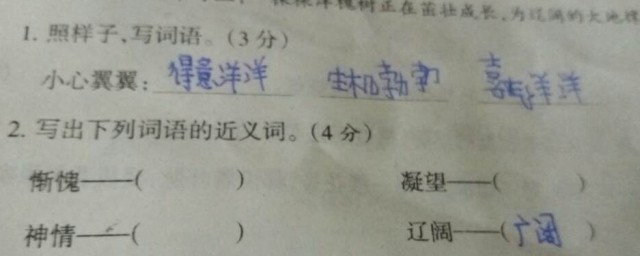 槐树正在茁壮成长,为辽阔的大地
1. 照样子,写词语。(3分)
小心翼翼: 得意洋洋 生机勃勃 喜气洋洋
2. 写出下列词语的近义词。(4分)
惭愧——( ) 凝望——( )
神情——( ) 辽阔——(广阔)